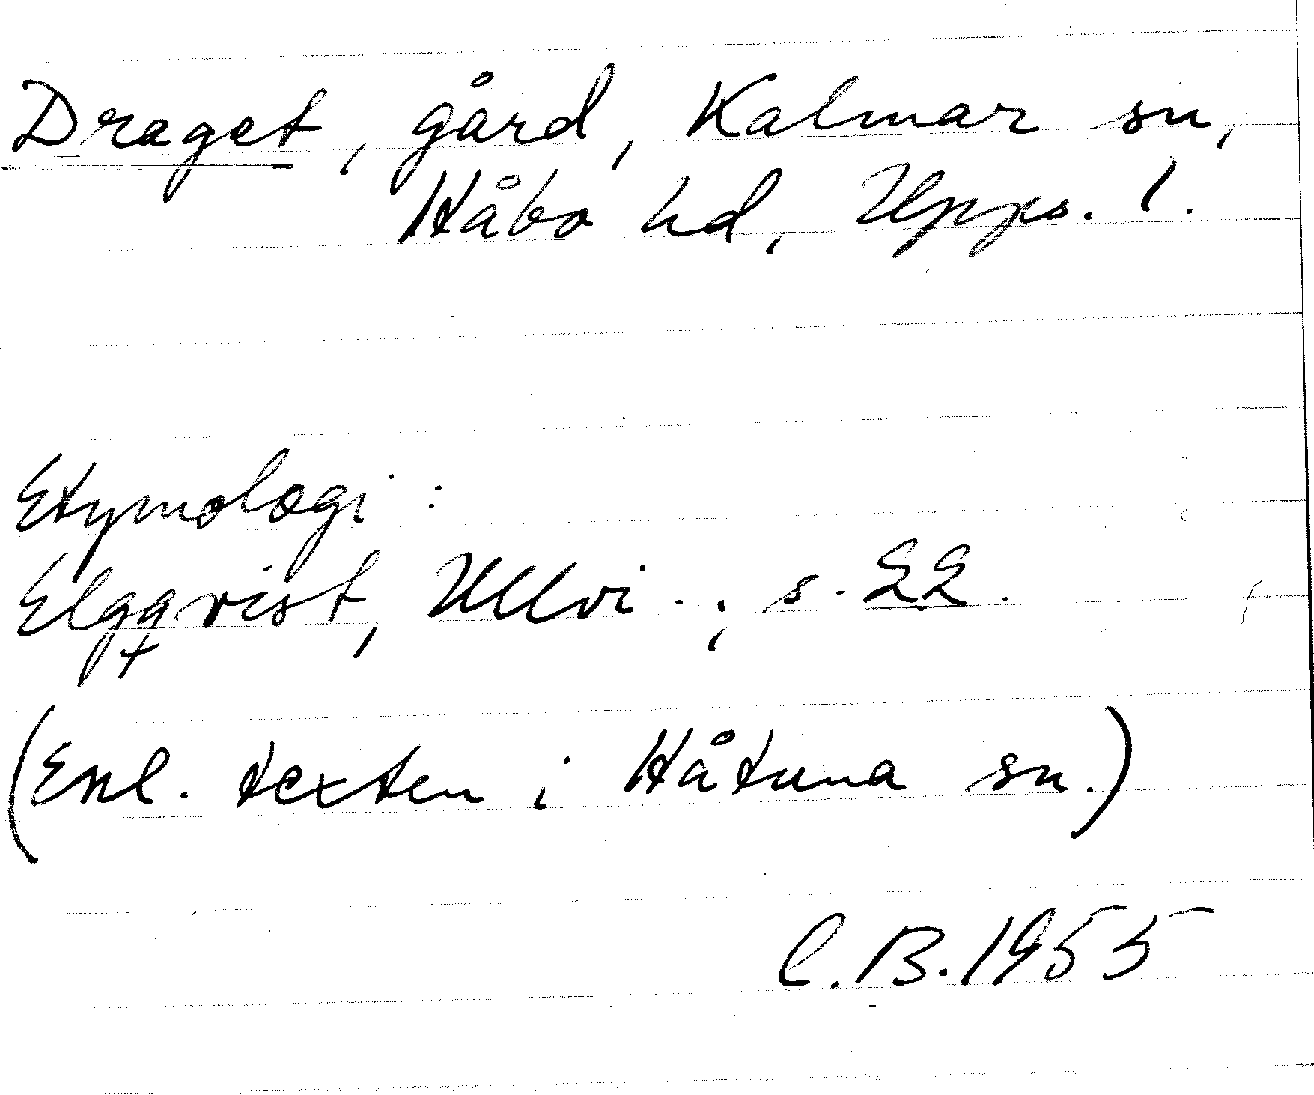 Draget, gård, Kalmar sn,
Håbo hd, Upps. l.
Etymologi:
Elgqvist, Ullvi.., s. 22.
(Enl. texten i Håtuna sn.)
C.B. 1955